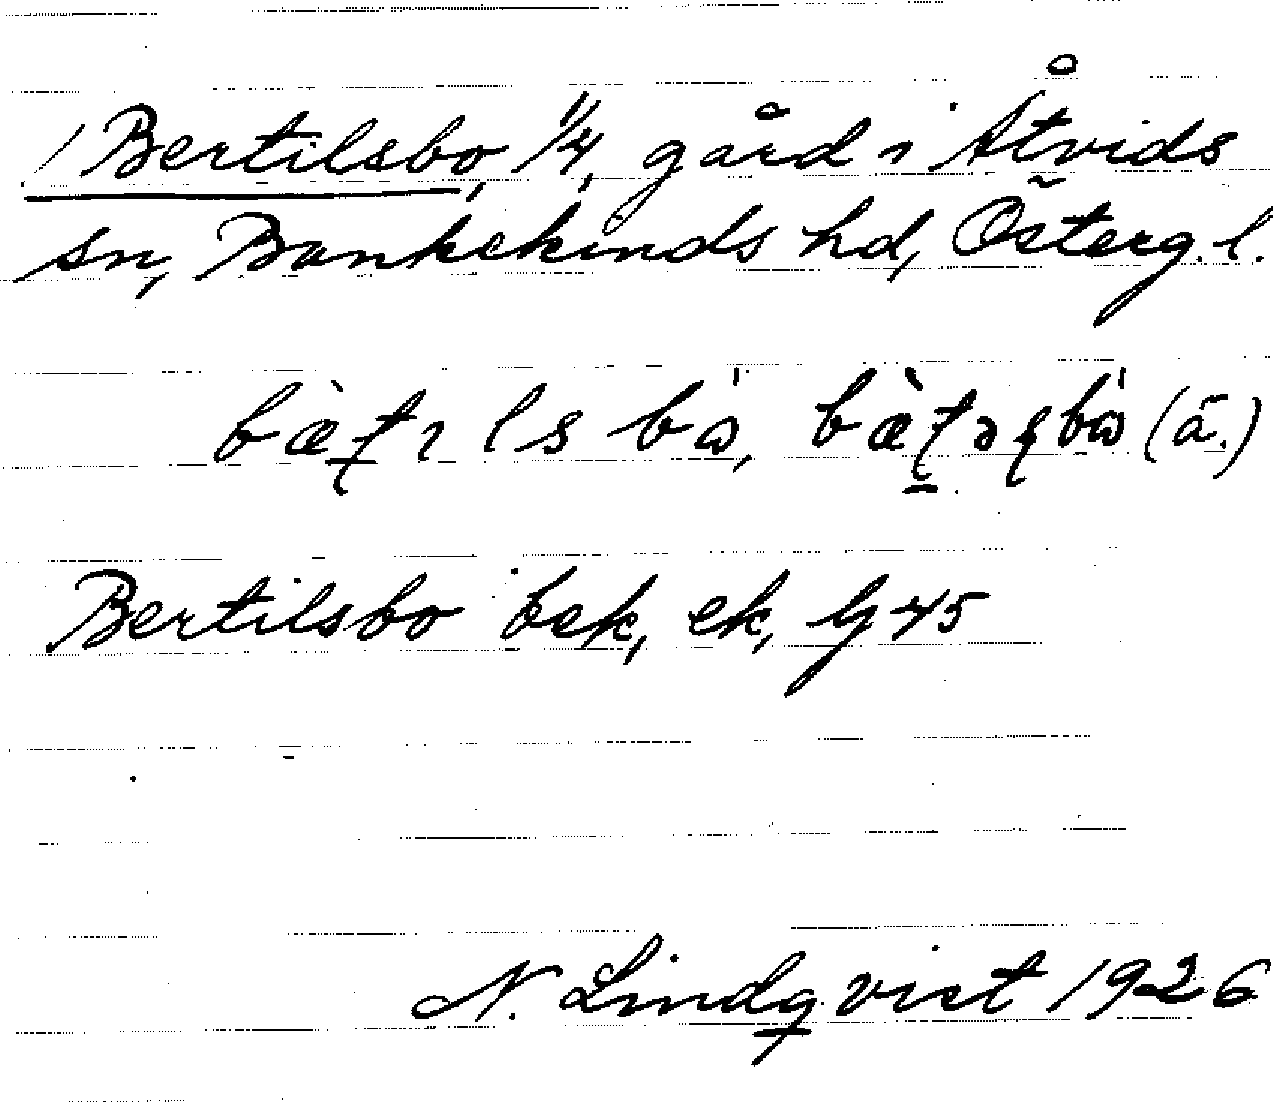 / Bertilsbo, 1/4, gård i Åtvids
sn, Bankekinds hd, Österg. l.
bæ̀ʈɪls bò, bæ̀ʈəʂbò (ä.)
Bertilsbo bek, ek, Gj 45
N. Lindqvist 1926